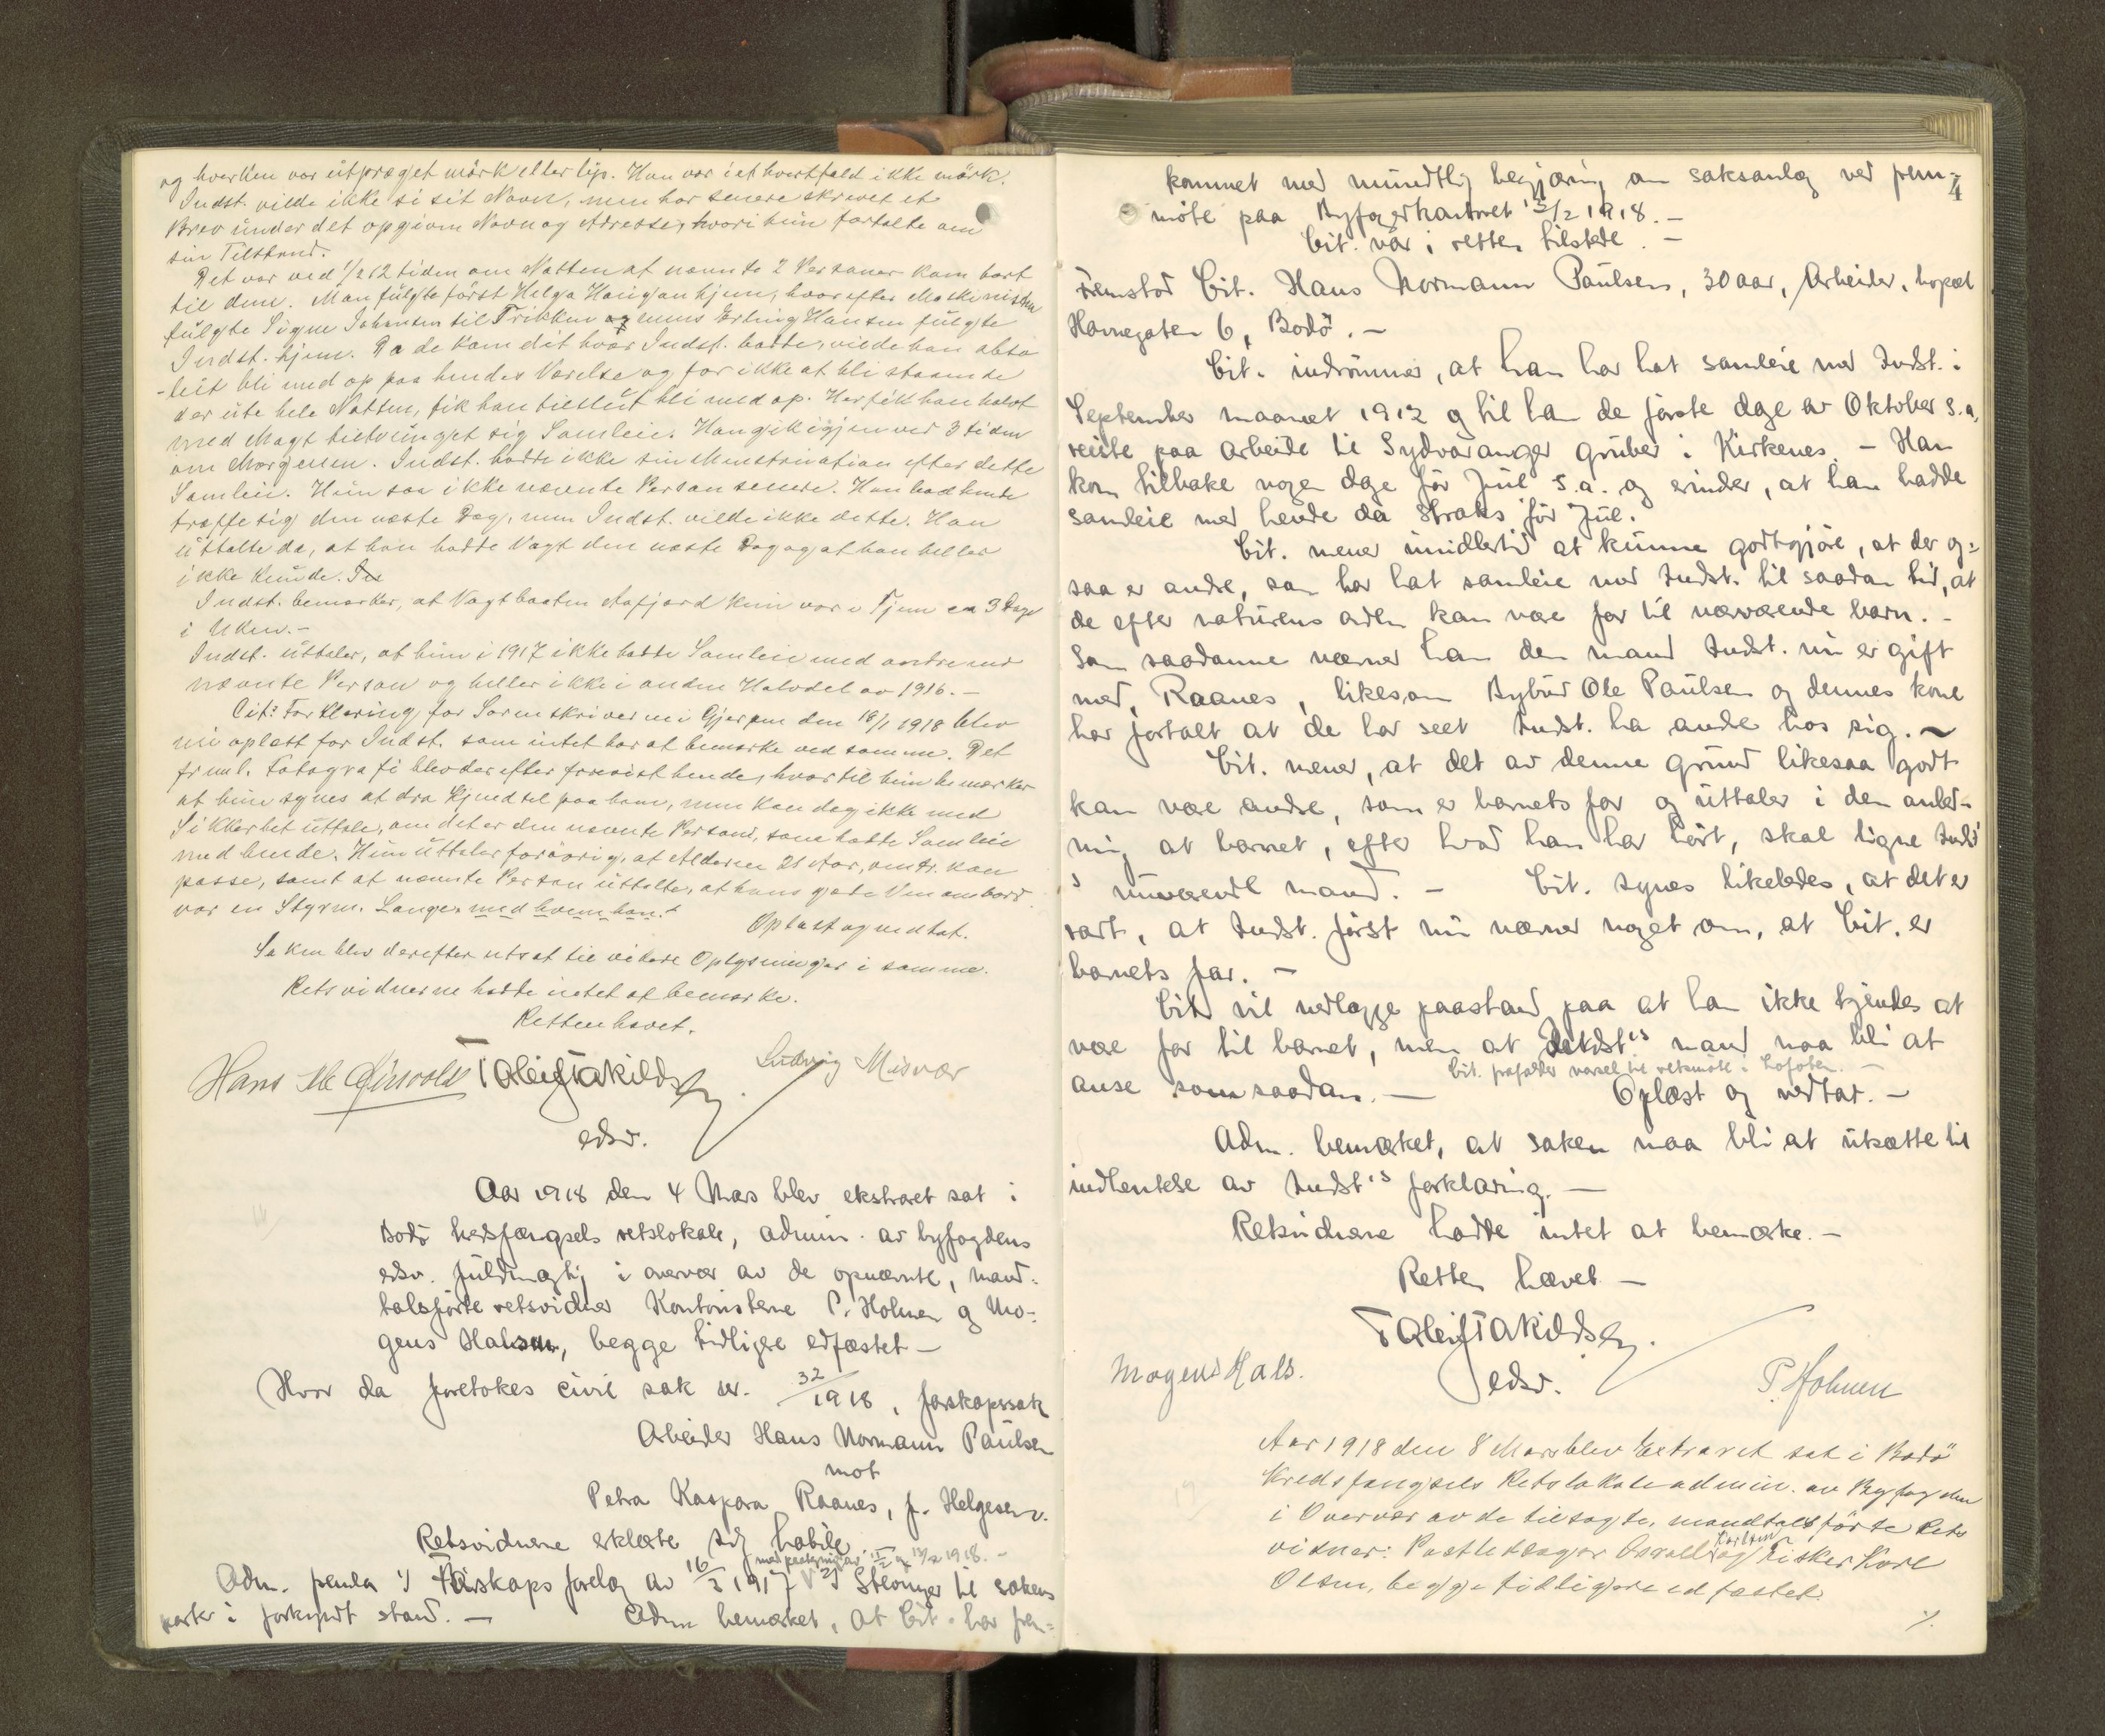 og hverken var utpræget mörk eller lys. Han var i et hvertfald ikke mörk.
Indst. vilde ikke si sit Navn, men har senere skrevet et
Brev under det opgivne Navn og Adresse, hvori hun fortalte om
sin Tilstand.
Det var ved 1/2 12 tiden om Natten at nævnte 2 Personer kom bort
til dem. Man fulgte först Helga Haugan hjem, hvorefter Maskinisten
fulgte Signe Johansen til Trikken og mens Erling Hansen fulgte
Indst. hjem. Da de kom det hvor Indst. bodde, vilde han abso
-lut bli med op paa hendes Værelse og for ikke at bli staaende
der ute hele Natten, fik han tilslut bli med op. Her fik han halvt
med Magt tiltvunget sig Samleie. Han gik igjen ved 3 tiden
om Morgenen. Indst. hadde ikke sin Menstruation efter dette
Samleie. Hun saa ikke nævnte Person senere. Han bad hende
træffe sig den næste Dag, men Indst. vilde ikke dette. Han
uttalte da, at han hadde Vagt den næste Dag og at han heller
ikke kunde.
Indst. bemærker, at Vagtbaaten Aafjord kun var i Tjen ca 3 Dage
i Uken.-
Indst. uttaler, at hun i 1917 ikke hadde Samleie med andre end
nævnte Person og heller ikke i anden Halvdel av 1916. -
Cit's Forklaring for Sorenskriveren i Gjerpen den 18/1 1918 blev
nu oplæst for Indst. som intet har at bemærke ved samme. Det
freml. Fotografi blev derefter forevist hende, hvortil hun bemærker
at hun synes at dra kjendsel paa ham, men kan dog ikke med
Sikkerhet uttale, om det er den nævnte Person, som hadde Samleie
med hende. Hun uttaler forövrig, at Alderen 21 Aar, omtr. kan
passe, samt at nævnte Person uttalte, at hans gode Ven ombord
var en Styrm. Lange, med hvem han.
Oplæst og vedtat.
Saken blev derefter utsat til videre Oplysninger i samme.
Retsvidnerne hadde intet at bemærke.
Retten hævet.
Ludvig Misvær
edsv.
Aar 1918 den 4 Mars blev ekstraret sat i
Bodö kredsfængsels retslokale, admin. av byfogdens
edsv. fuldmægtig i overvær av de opnævnte, mand-
talsförte retsvidner Kontoristene P. Holmen og Mo-
gens Halsen, begge tidligere edfæstet -
Hvor da foretokes civil sak nr. 32/1918, farskapssak
Arbeider Hans Normann Paulsen
mot
Petra Kaspara Raanes, f. Helgesen.
Retsvidnene erklærte sig habile
Adm. fremla 1) Farskapsforelæg av 16/3 1917 2) Stevninger til sakens
parter i forkyndt stand. - Adm bemærket, at Cit. har frem-
4
kommet med mundtlig begjæring om saksanlæg ved frem-
möte paa Byfogerkontoret 13/2 1918. -
Cit. var i retten tilstede. -
Fremstod Cit. Hans Normann Paulsen, 30 aar, Arbeider, bopæl
Havnegaten 6, Bodö. -
Cit. indrömmer, at han har hat samleie med Indst. i
September maanet 1912 og til han de förste dage av Oktober s.a.
reiste paa arbeide til Sydvaranger gruber i Kirkenes. - Han
kom tilbake nogen dage før Jul s.a. og erindrer, at han hadde
samleie med hende da straks för Jul.
Cit. mener imidlertid at kunne godtgjöre, at der og-
saa er andre, som har hat samleie med Indst. til saadan tid, at
de efter naturens orden kan være far til nærværende barn. -
Som saadanne nævner han den mand Indst. nu er gift
med, Raanes, likesom Bybud Ole Paulsen og dennes kone
har fortalt at de har seet Indst. ha andre hos sig. ~
Cit. mener, at det av denne grund likesaa godt
kan være andre, som er barnets far og uttaler i den anled-
ning at barnet, efter hvad han har hört, skal ligne Indst
's nuværende mand. - Cit. synes likeledes, at det er
rart, at Indst. först nu nævner noget om, at Cit. er
barnets far. -
Cit vil nedlægge paastand paa at han ikke kjendes at
være far til barnet, men at Indst's mand maa bli at
Cit. frafalder varsel til retsmöte i Lofoten. -
anse som saadan. - Oplæst og vedtat. -
Adm. bemærket, at saken maa bli at utsætte til
indhentelse av Indst's forklaring. -
Retsvidnene hadde intet at bemærke. -
Retten hævet -
Mogens Hals.
edsv.
P. Holmen
Aar 1918 den 8 Mars blev Extraret sat i Bodö
Kredsfængsels Retslokale admin. av Byfogden
i Overvær av de tilsagte, mandtalsförte Rets
vidner: og Karlsen Fisker Karl
Olsen, begge tidligere edfæstet.
./.